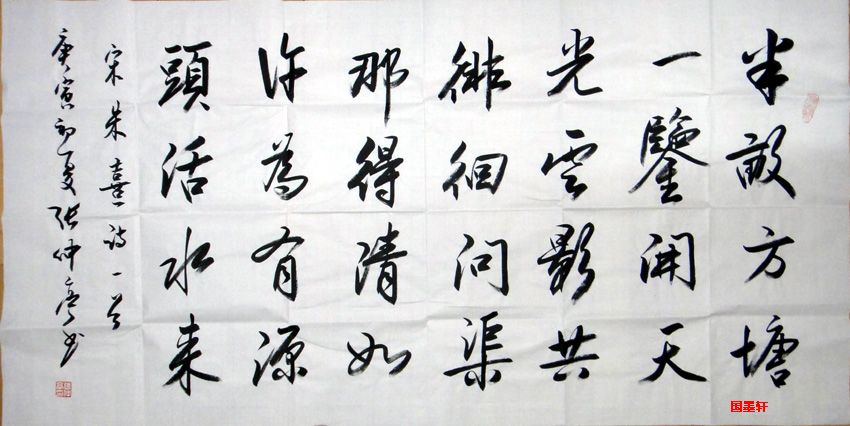 半畝方塘
一鑒開天
光雲影共
徘徊問渠
那得清如
许為有源
頭活水来
宋朱熹诗一首
庚寅初夏张仲亭书
国墨轩